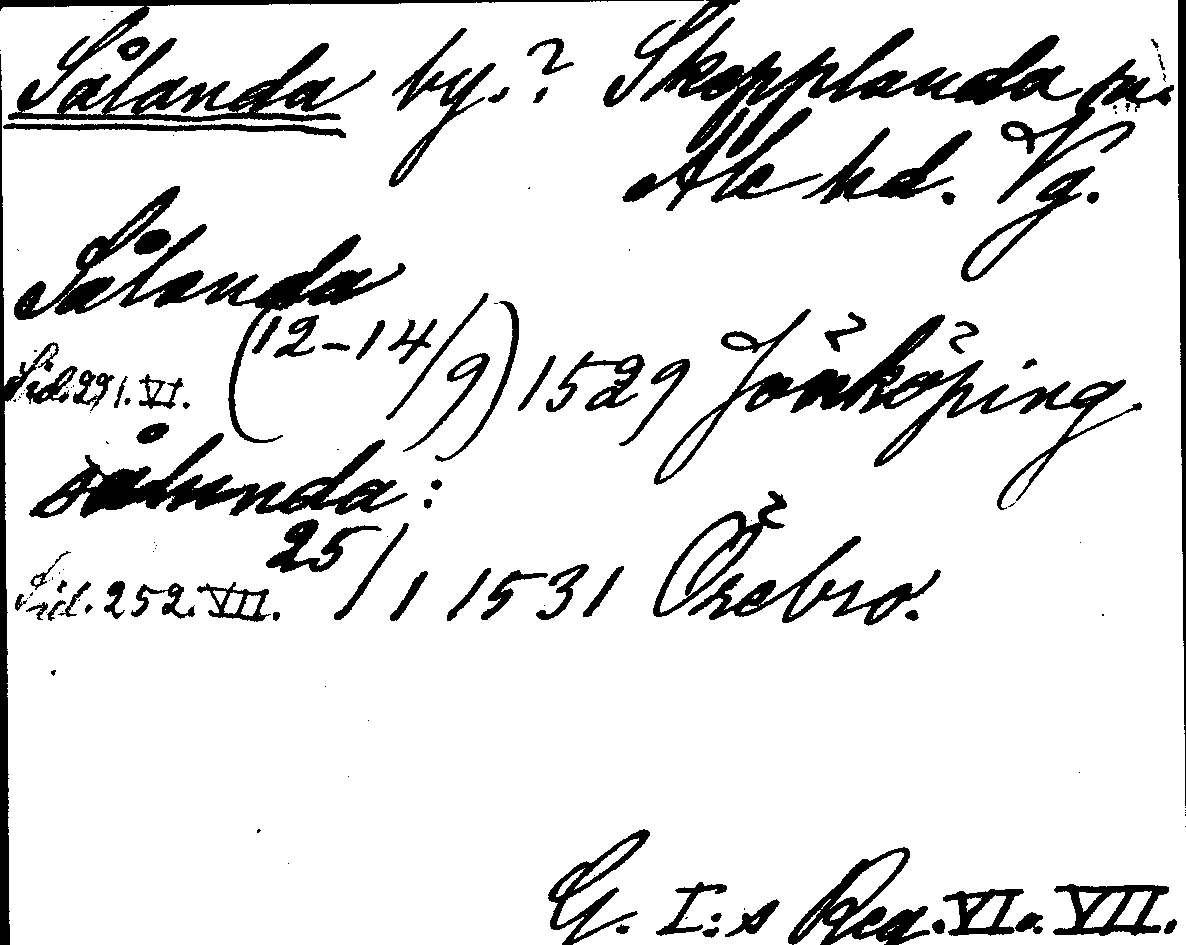 Sålanda by.? Skepplanda sn.
Ale hd. Vg.
Sålanda
Sid. 291. VI. (12-14/9) 1529 Jönköping.
sålunda:
Sid. 252. VII. 25/1 1531 Örebro.
G. I:s Reg. VI o. VII.